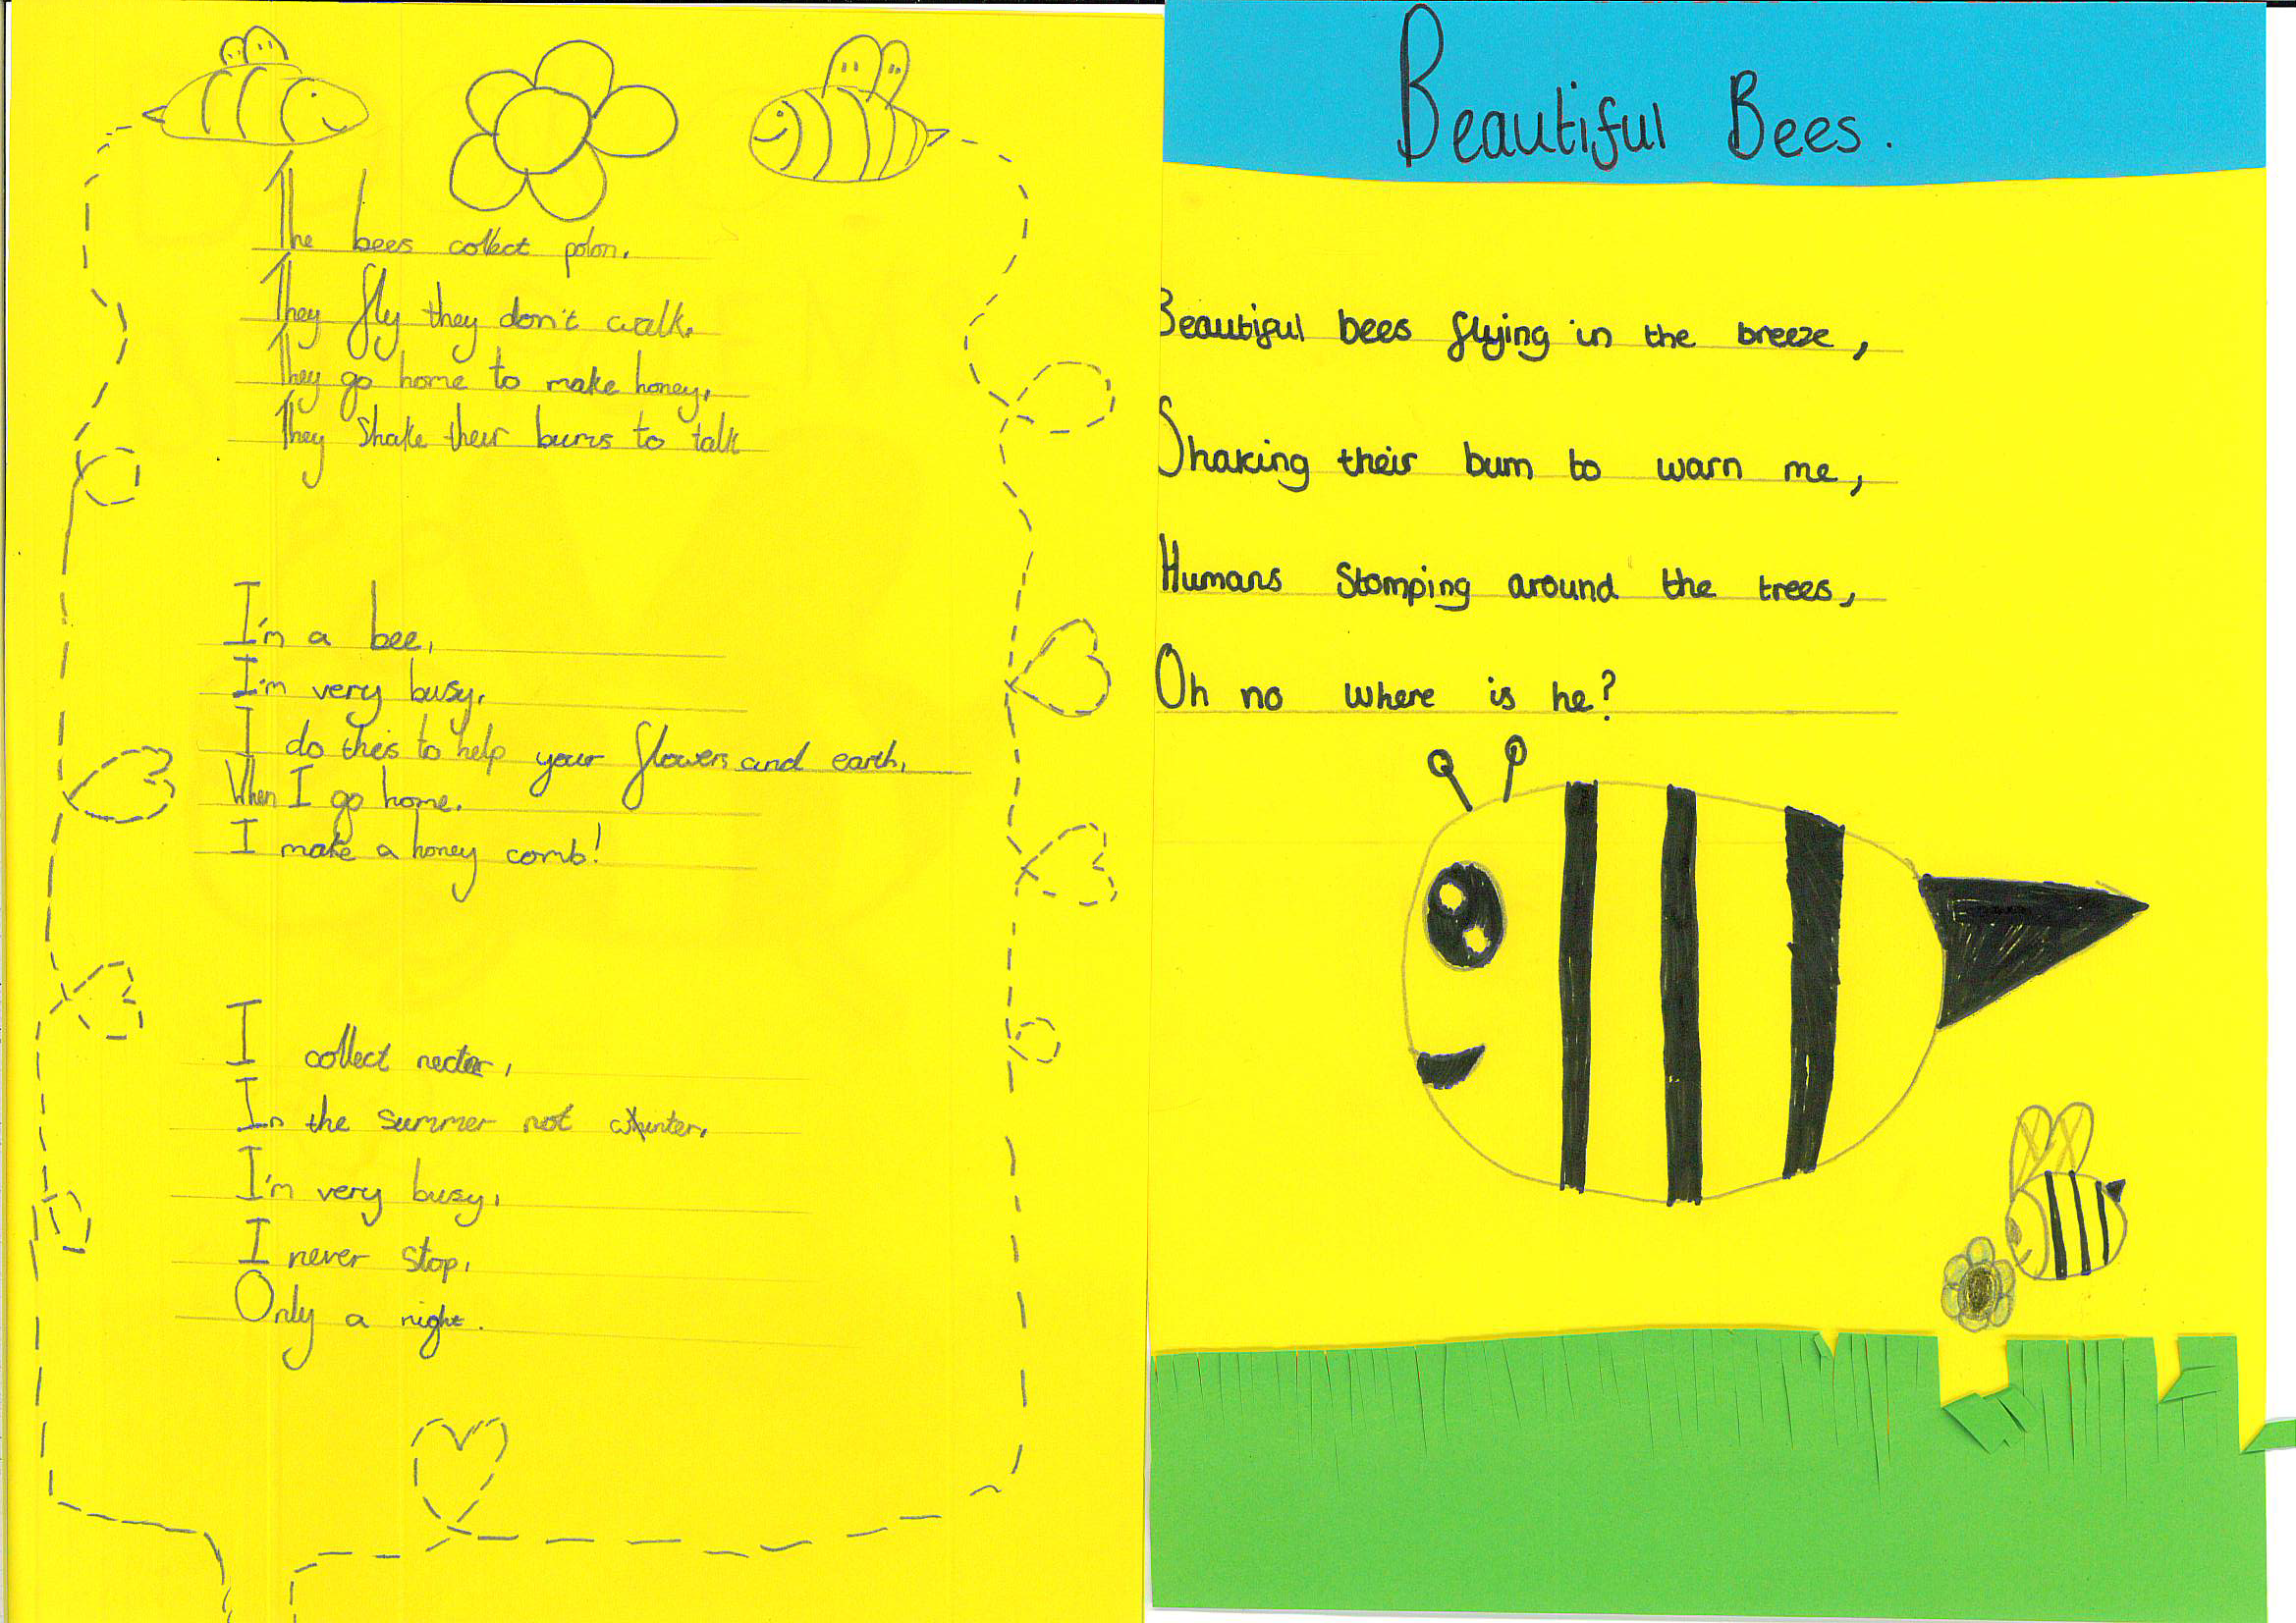 The bees collect polon.
They fly they don't walk.
They go home to make honey,
They shake their bums to talk
I'm a bee,
I'm very busy,
I do this to help your flowers and earth,
When I go home.
I make a honey comb!
I collect nectar,
In the summer not winter,
I'm very busy,
I never stop,
Only a night.
Beautiful Bees.
Beautiful bees flying in the breeze,
Shaking their bum to warn me,
Humans stomping around the trees,
Oh no where is he?